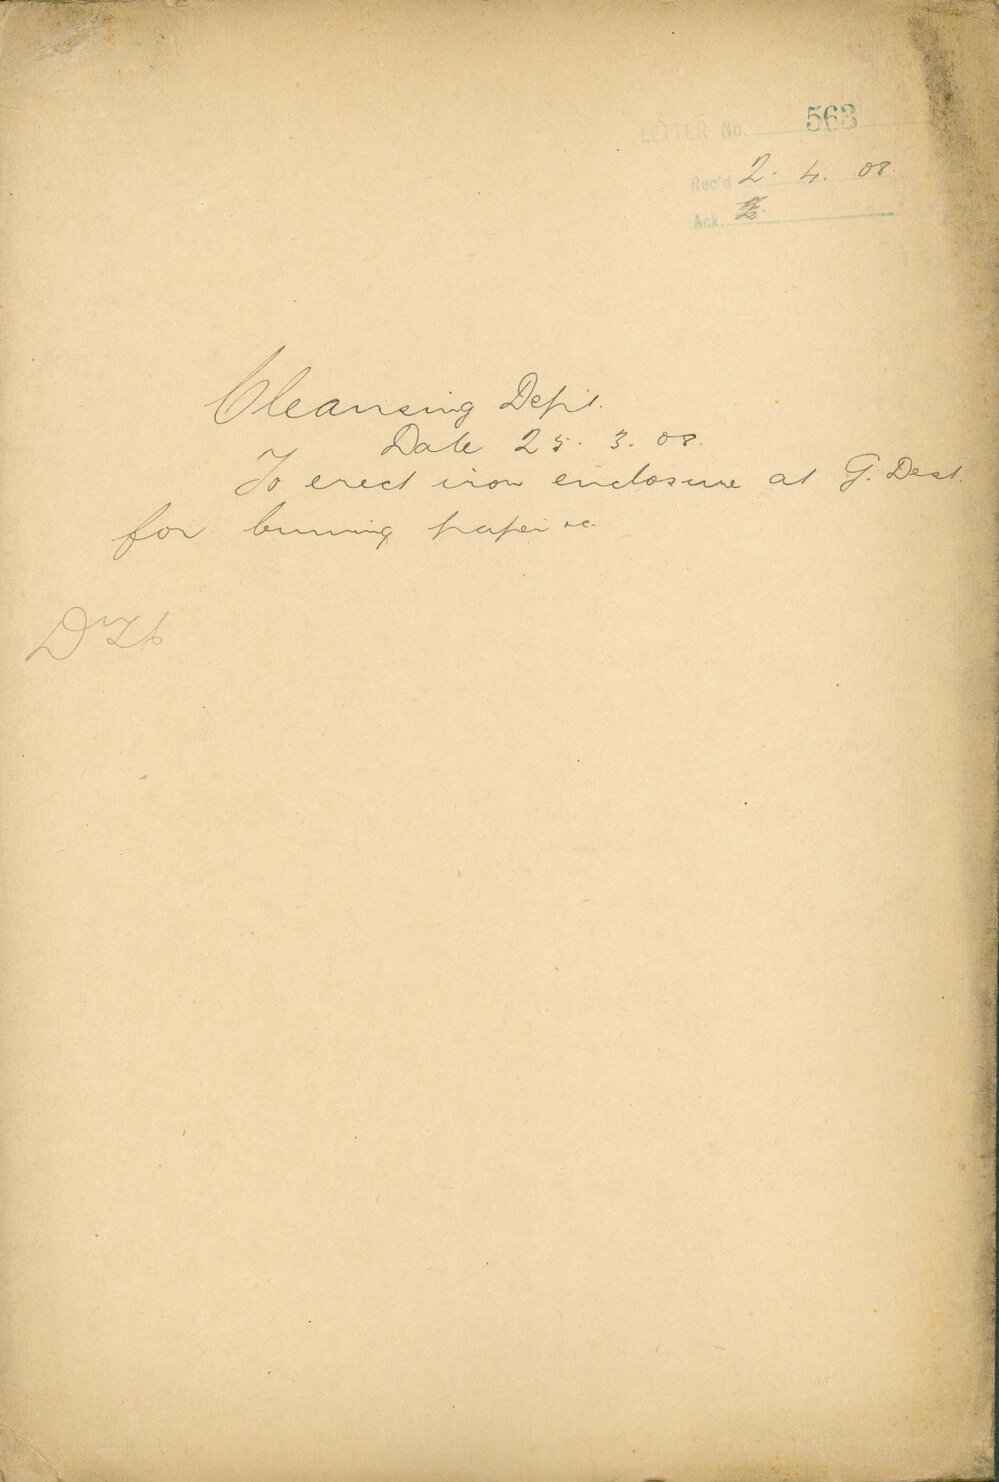 LETTER No. 563
Rec'd 2. 4. 08.
Ack.
Cleansing Dept.
Date 25. 3. 08.
To erect iron enclosure at G. Dest.
for burning paper &c.